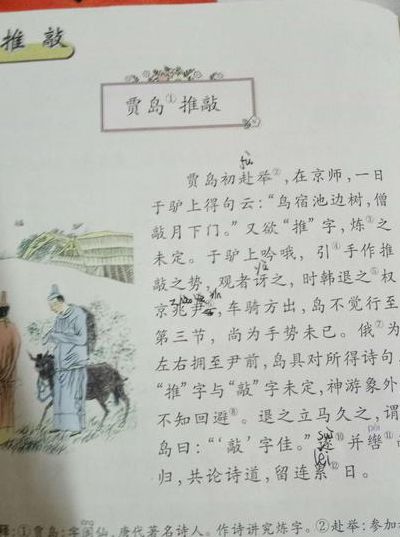 推 敲
贾岛①推敲
fù
贾岛初赴举②，在京师，一日
于驴上得句云：“鸟宿池边树，僧
敲月下门。”又欲“推”字，炼③之
未定。于驴上吟哦，引④手作推
敲之势，观者讶之，时韩退之⑤权
京兆尹⑥，车骑方出，岛不觉行至
第三节，尚为手势未已。俄⑦为
左右拥至尹前，岛具对所得诗句，
“推”字与“敲”字未定，神游象外
不知回避⑧。退之立马久之，谓
岛曰：“‘敲’字佳。”遂⑩并辔⑪
归，共论诗道，留连累⑫日。
①贾岛：字阆仙，唐代著名诗人。作诗讲究炼字。②赴举：参加